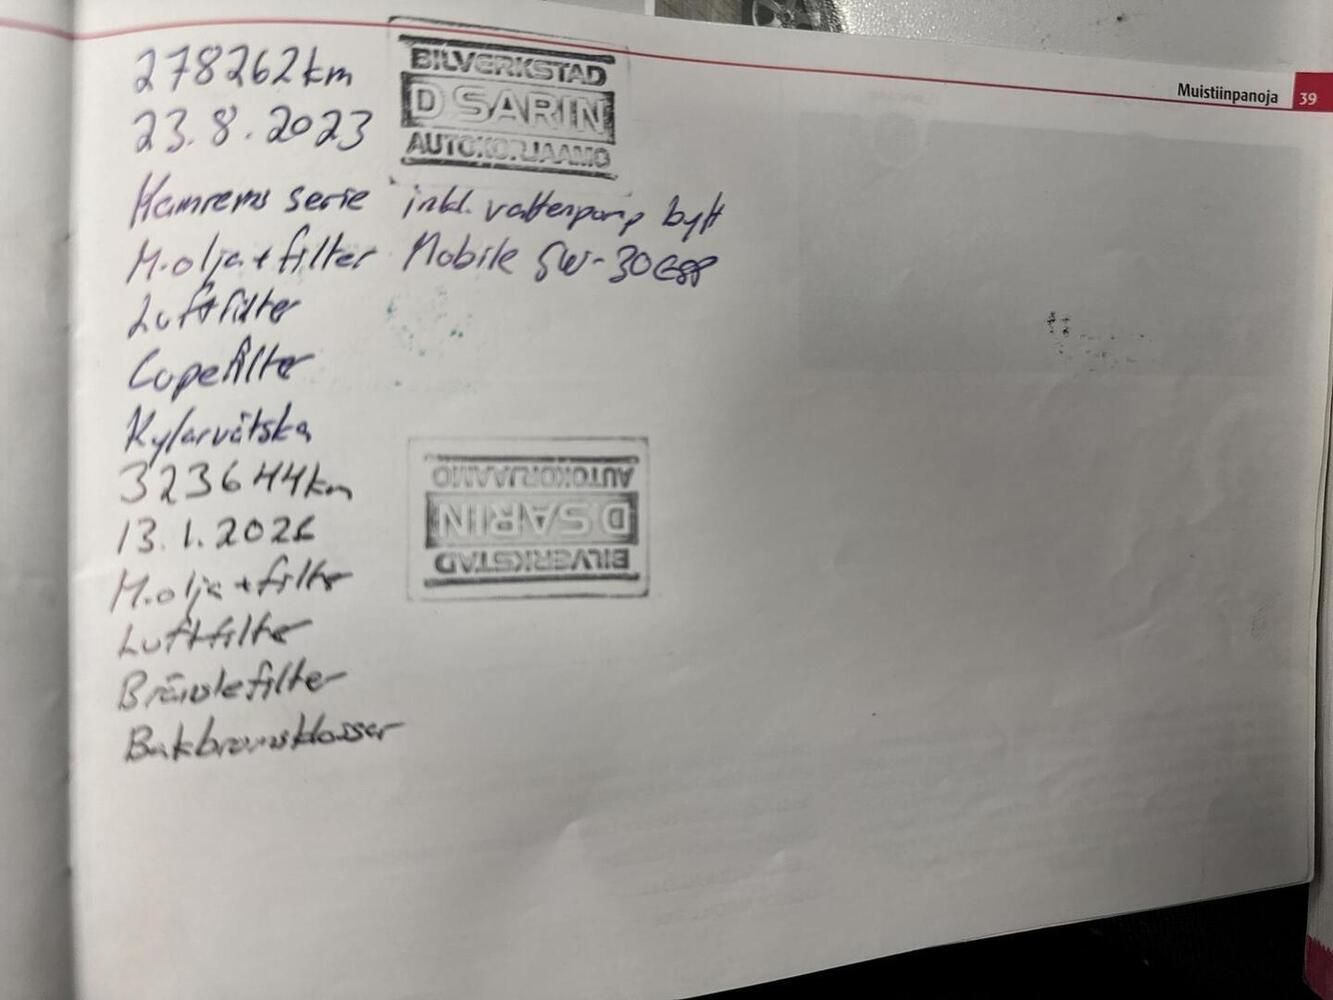 Muistiinpanoja 39
278262km
23.8.2023
BILVERKSTAD
D SARIN
AUTOKORJAAMO
Kamrems serie inkl. vattenpump bytt
M.olja + filter Mobile 5W-30 ESP
Luftfilter
Cupefilter
Kylarvätska
323644km
13.1.2026
BILVERKSTAD
D SARIN
AUTOKORJAAMO
M.olja + filter
Luftfilter
Bränslefilter
Bakbromsklossar